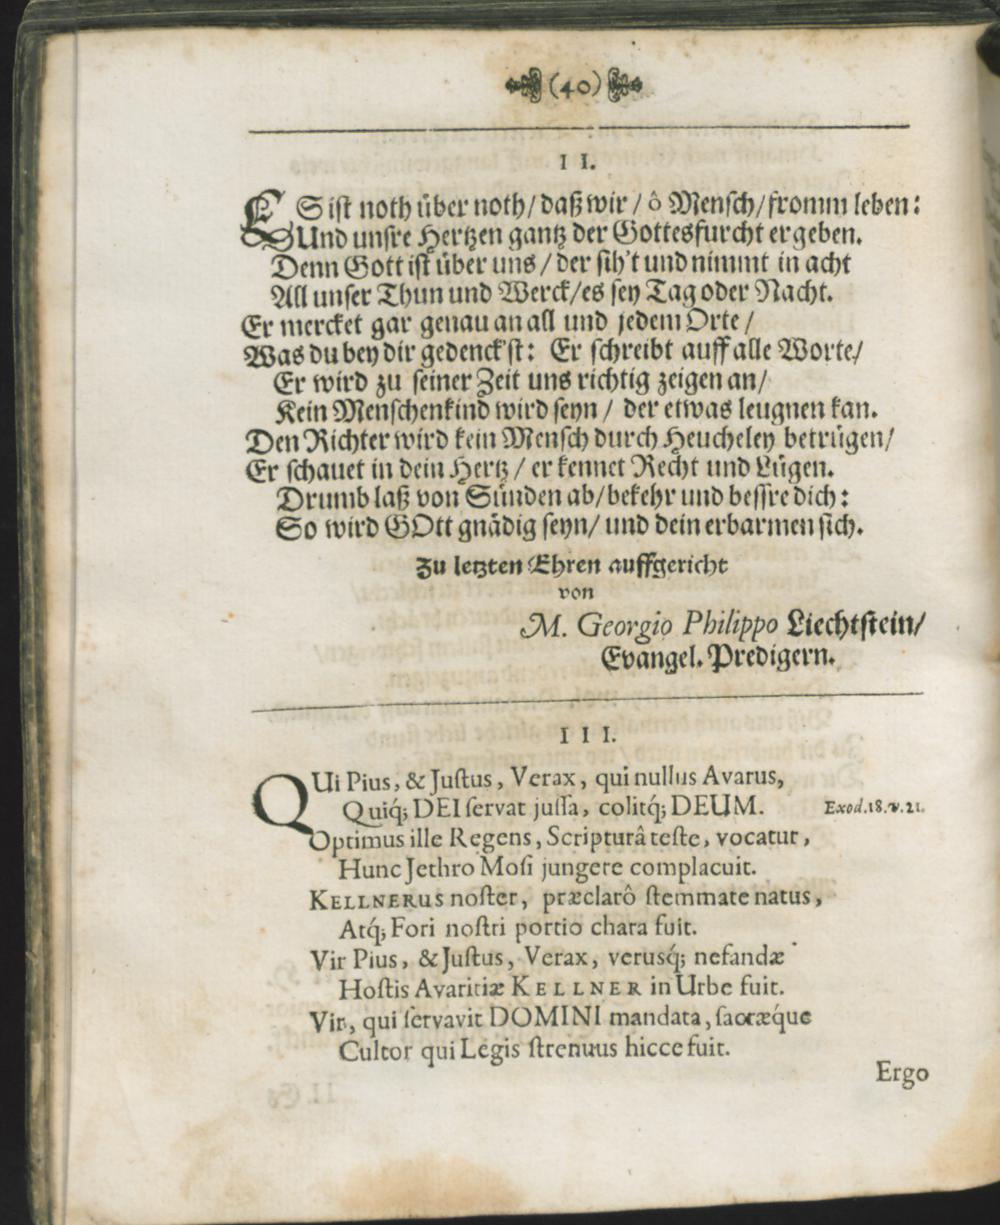 (40)
II.
ES ist noth über noth/ daß wir / ô Mensch/ fromm leben:
Und unsre Hertzen gantz der Gottesfurcht ergeben.
Denn Gott ist über uns / der sih't und nimmt in acht
All unser Thun und Werck/ es sey Tag oder Nacht.
Er mercket gar genau an all und jedem Orte /
Was du bey dir gedenck'st: Er schreibt auff alle Worte/
Er wird zu seiner Zeit uns richtig zeigen an/
Kein Menschenkind wird seyn / der etwas leugnen kan.
Den Richter wird kein Mensch durch Heucheley betrügen/
Er schauet in dein Hertz / er kennet Recht und Lügen.
Drumb laß von Sünden ab/ bekehr und bessre dich:
So wird GOtt gnädig seyn/ und dein erbarmen sich.
Zu letzten Ehren auffgericht
von
M. Georgio Philippo Liechtstein/
Evangel. Predigern.
III.
QUi Pius, & Justus, Verax, qui nullus Avarus,
Quiq́; DEI servat jussa, colitq́; DEUM. Exod. 18. v. 21.
Optimus ille Regens, Scripturâ teste, vocatur,
Hunc Jethro Mosi jungere complacuit.
KELLNERUS noster, præclarô stemmate natus,
Atq́; Fori nostri portio chara fuit.
Vir Pius, & Justus, Verax, verusq́; nefandæ
Hostis Avaritiæ KELLNER in Urbe fuit.
Vir, qui servavit DOMINI mandata, sacræq́ue
Cultor qui Legis strenuus hicce fuit.
Ergo